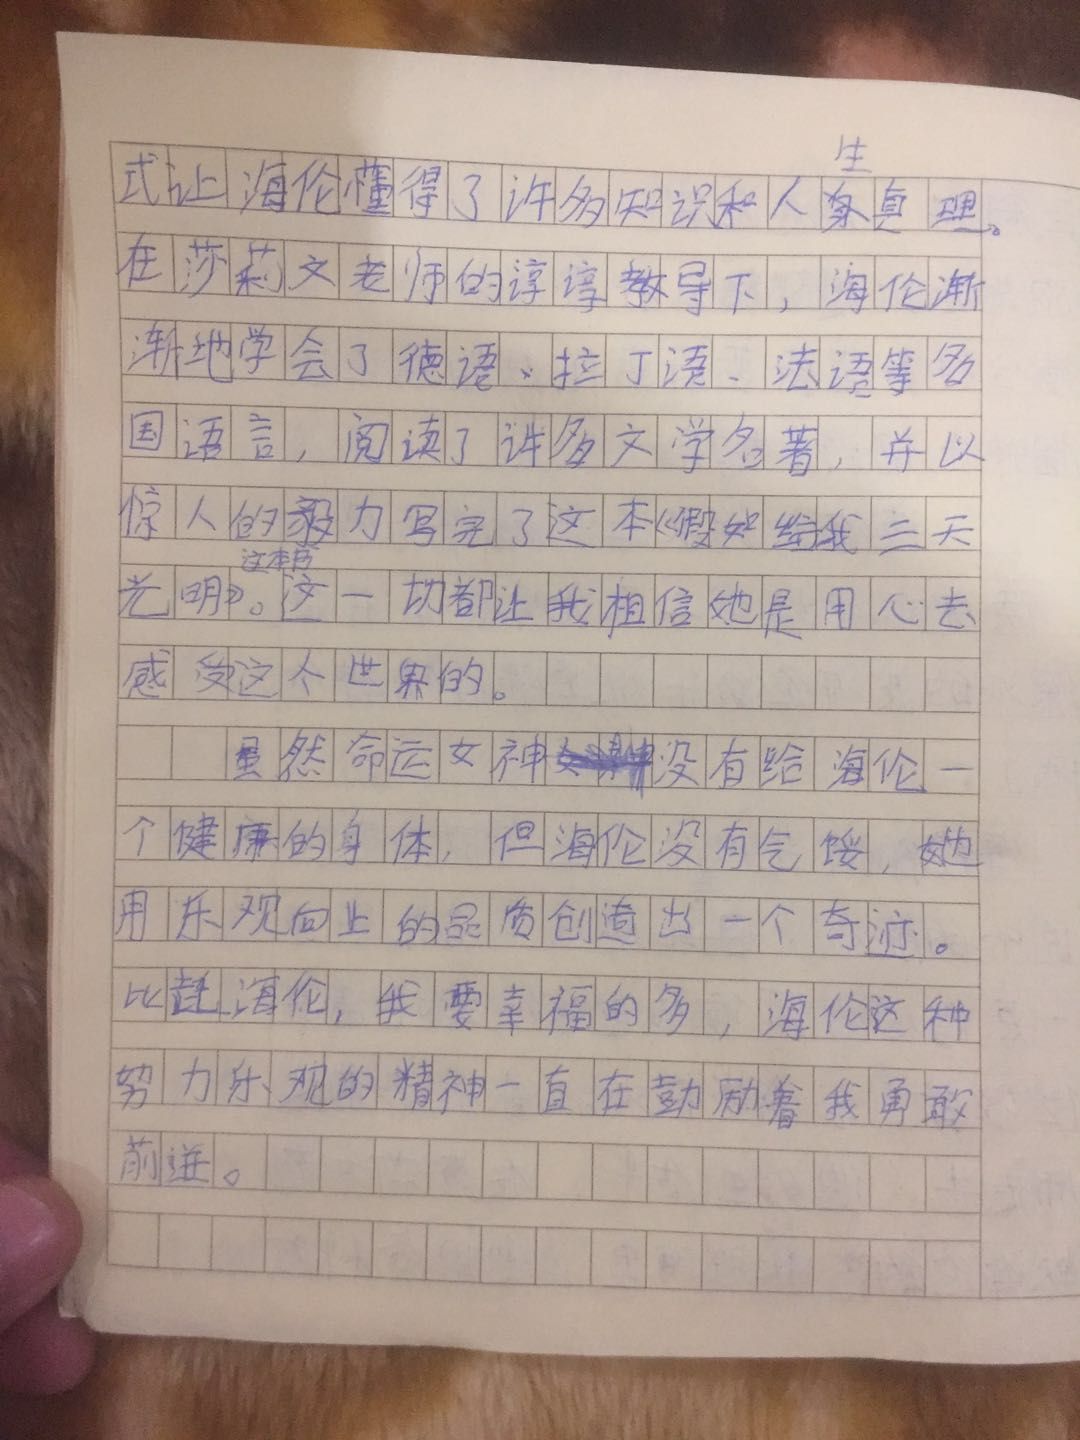 生
式让海伦懂得了许多知识和人真理。
在莎莉文老师的谆谆教导下，海伦渐
渐地学会了德语、拉丁语、法语等多
国语言，阅读了许多文学名著，并以
惊人的毅力写完了这本《假如给我三天
这本书
光明》。这一切都让我相信她是用心去
感受这个世界的。
虽然命运女神没有给海伦一
个健康的身体，但海伦没有气馁，她
用乐观向上的品质创造出一个奇迹。
比起海伦，我要幸福的多，海伦这种
努力乐观的精神一直在鼓励着我勇敢
前进。